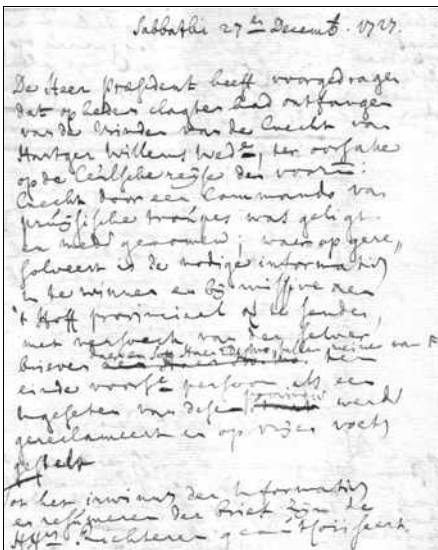 Sabbathi 27en Decemb. 1727.
De Heer president heeft voorgedragen
dat op heden clagten had ontfangen
van de vrinden van de Cnecht van
Hartger Willems wede, ter oorsake
op de Ceulsche reijse den voorn:
Cnecht door een Commando van
pruijsische troupes was geligt
en mede genomen; waer op gere„
solveert is de nodige informatien
in te winnen en bij missive aen
't Hoff provinciael te senden,
met versoeck van der selver
brieven
einde voorsz persoon als een
ingeseten van dese provincie werd
gereclameert en op vrije voeten
gestelt
tot het inwinnen der Informatien
en resumeren der brief zijn de
HHrn Richteren geauthoriseert.